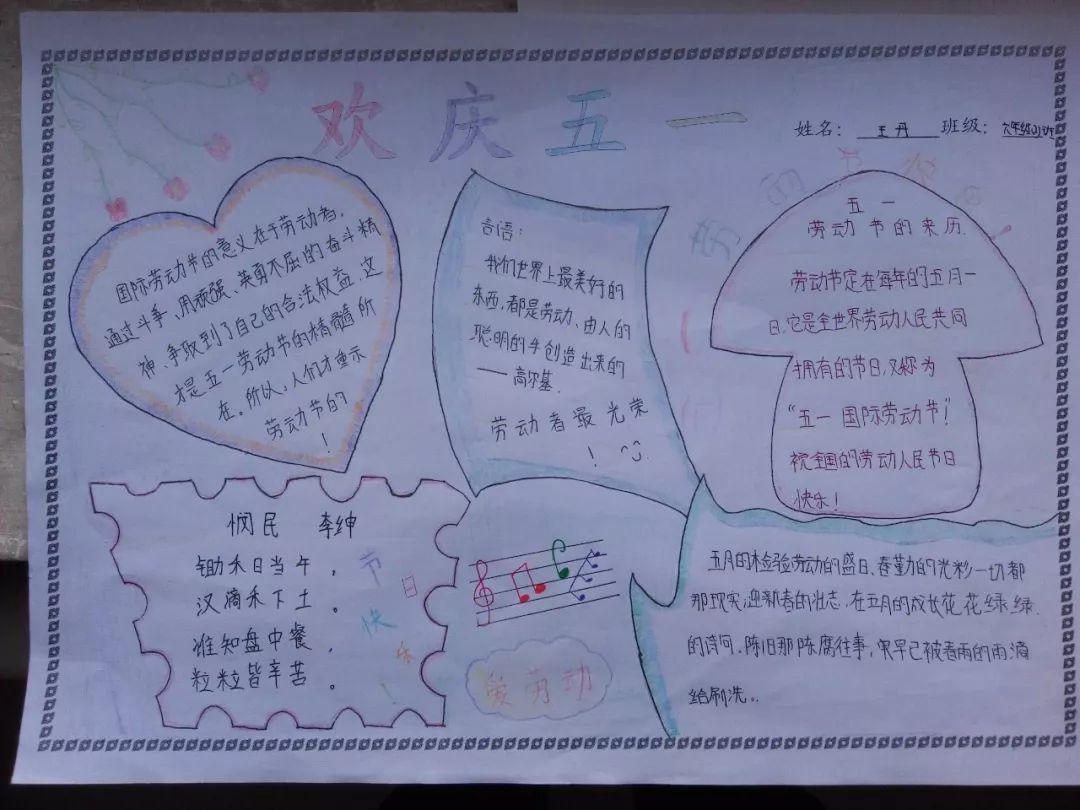 欢庆五一
姓名：王丹 班级：六年级(3)班
国际劳动节的意义在于劳动者，
通过斗争、用顽强、英勇不屈的奋斗精
神、争取到了自己的合法权益，这
才是五一劳动节的精髓所
在。所以，人们才重示
劳动节的
！
言语：
我们世界上最美好的
东西，都是劳动、由人的
聪明的手创造出来的
——高尔基.
劳动者最光荣
！
五一
劳动节的来历.
劳动节定在每年的五月一
日，它是全世界劳动人民共同
拥有的节日，又称为
“五一国际劳动节”！
祝全国的劳动人民节日
快乐！
悯民 李绅
锄禾日当午，
汉滴禾下土。
谁知盘中餐，
粒粒皆辛苦。
节
日
快
乐
！
爱劳动
五月的检验劳动的盛日、春勤的光彩一切都
那现实，迎新春的壮志，在五月的成长花花绿绿.
的诗问.陈旧那陈腐往事，早已被春雨的雨滴
给刷洗..